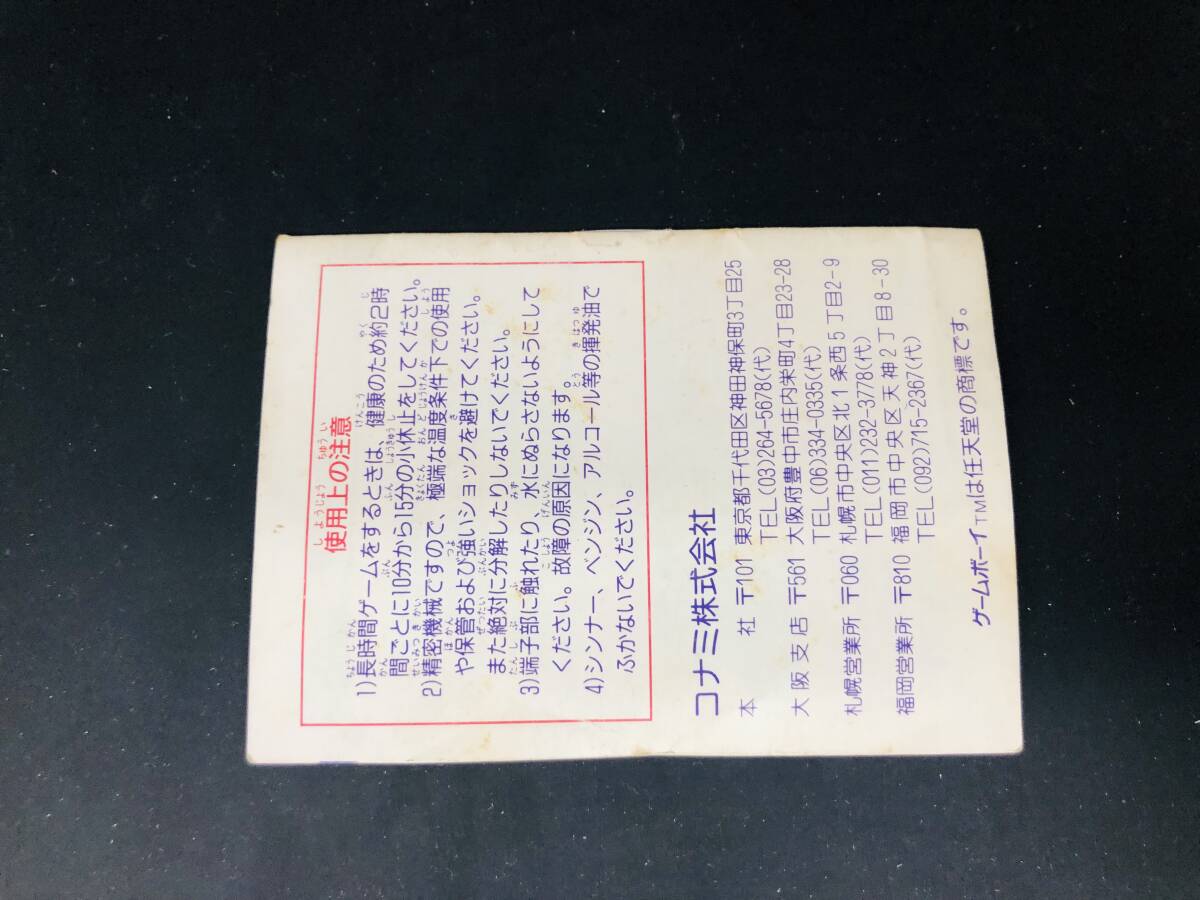 使用上の注意
1)長時間ゲームをするときは、健康のため約2時
間ごとに10分から15分の小休止をしてください。
2)精密機械ですので、極端な温度条件下での使用
や保管および強いショックを避けてください。
また絶対に分解したりしないでください。
3)端子部に触れたり、水にぬらさないようにして
ください。故障の原因になります。
4)シンナー、ベンジン、アルコール等の揮発油で
ふかないでください。
コナミ株式会社
本 社 〒101 東京都千代田区神田神保町3丁目25
TEL(03)264-5678(代)
大阪支店 〒561 大阪府豊中市庄内栄町4丁目23-28
TEL(06)334-0335(代)
札幌営業所 〒060 札幌市中央区北1条西5丁目2-9
TEL(011)232-3778(代)
福岡営業所 〒810 福岡市中央区天神2丁目8-30
TEL(092)715-2367(代)
ゲームボーイTMは任天堂の商標です。